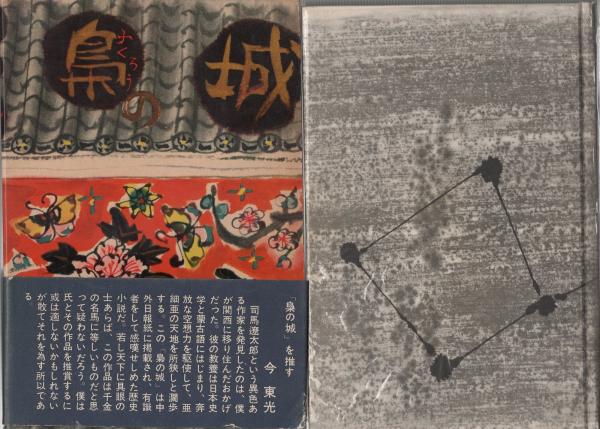 梟の城
ふくろう
「梟の城」を推す
今東光
司馬遼太郎という異色あ
る作家を発見したのは、僕
が関西に移り住んだおかげ
だった。彼の教養は日本史
学と蒙古語にはじまり、奔
放な空想力を駆使して、亜
細亜の天地を所狭しと濶歩
する。この「梟の城」は中
外日報紙に掲載され、有識
者をして感嘆せしめた歴史
小説だ。若し天下に具眼の
士あらば、この作品は千金
の名馬に等しいものだと思
って疑わないだろう。僕は
氏とその作品を推賞するに
或は適しないかもしれない
が敢てそれを為す所以であ
る。